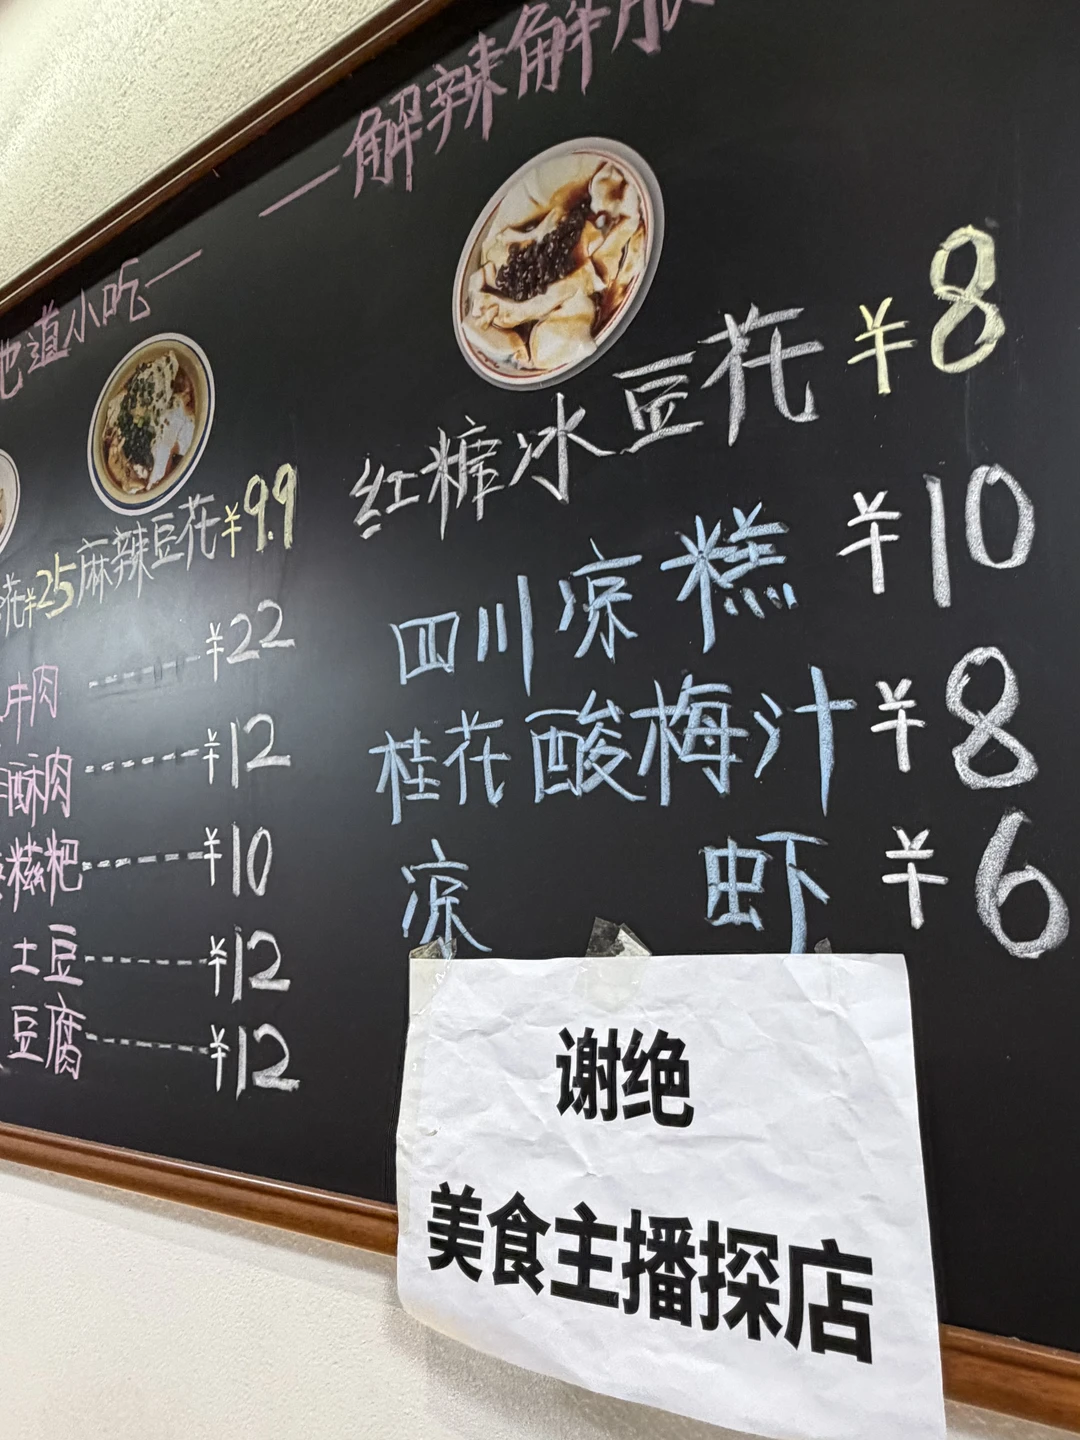 解辣解腻
红糖冰豆花 ¥8
四川凉糕 ¥10
桂花酸梅汁 ¥8
凉虾 ¥6
地道小吃
花¥25 麻辣豆花¥9.9
牛肉 ¥22
酥肉 ¥12
糍粑 ¥10
土豆 ¥12
豆腐 ¥12
谢绝
美食主播探店